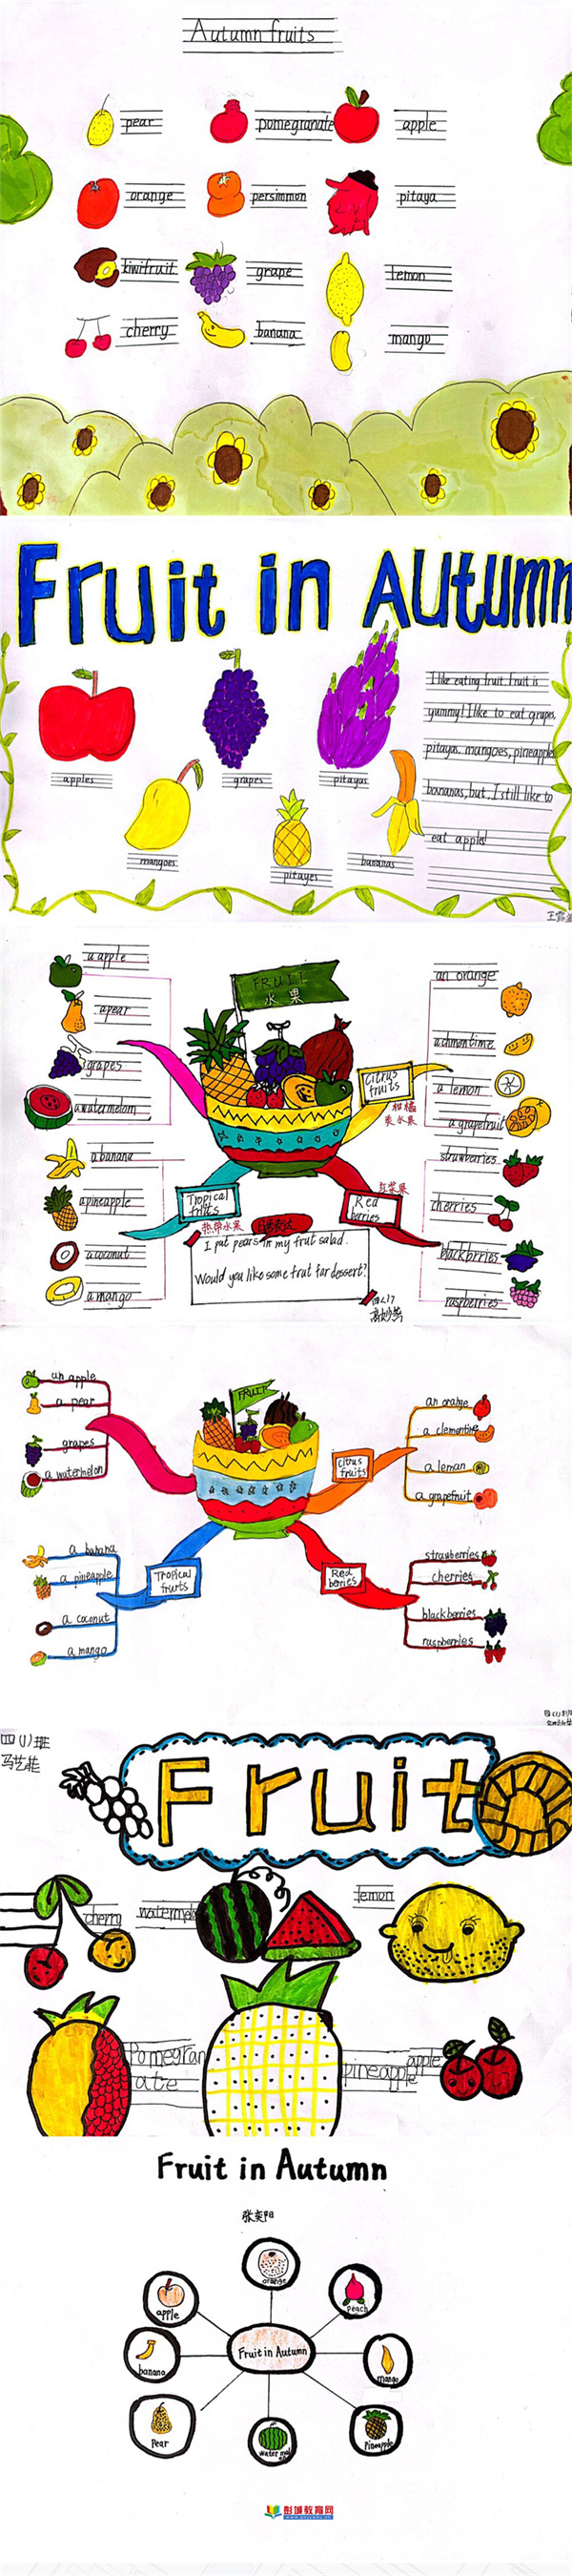 Autumn fruits
pear
pomegranate
apple
orange
persimmon
pitaya
kiwifruit
grape
lemon
cherry
banana
mango
Fruit in Autumn
I like eating fruit. Fruit is
yummy! I like to eat grapes,
pitayas. mangoes, pineapple
bananas, but, I still like to
eat apples!
apples
grapes
pitayas
mangoes
pitayes
bananas
a apple
a pear
grapes
a watermelom
a banana
a pineapple
a coconut
a mango
FRUIT
水果
Citrus
fruits
柑橘
类水果
Tropical
fruits
热带水果
Red
berries
红浆果
I pat pears in my frut salad.
Would you like some frut for dessert?
an orange
a lemon
a grapefruit
strawbaries
cherries
blackbrries
raspberries
an apple
a pear
grapes
a watermelon
a banana
a pineapple
a coconut
a mango
FRUIT
Citrus
fruits
Tropical
fruits
Red
beries
an orange
a clementine
a leman
a grapefruit
strawberries
cherries
blackberries
raspberries
四(1)班
马艺菲
Fruit
cherry
watermel
lemon
Pomegran
ate
pineapple
apple
Fruit in Autumn
张奕阳
orange
apple
peach
banana
Fruit in Autumn
mango
Pear
water mel
Pineapple
彭城教育网